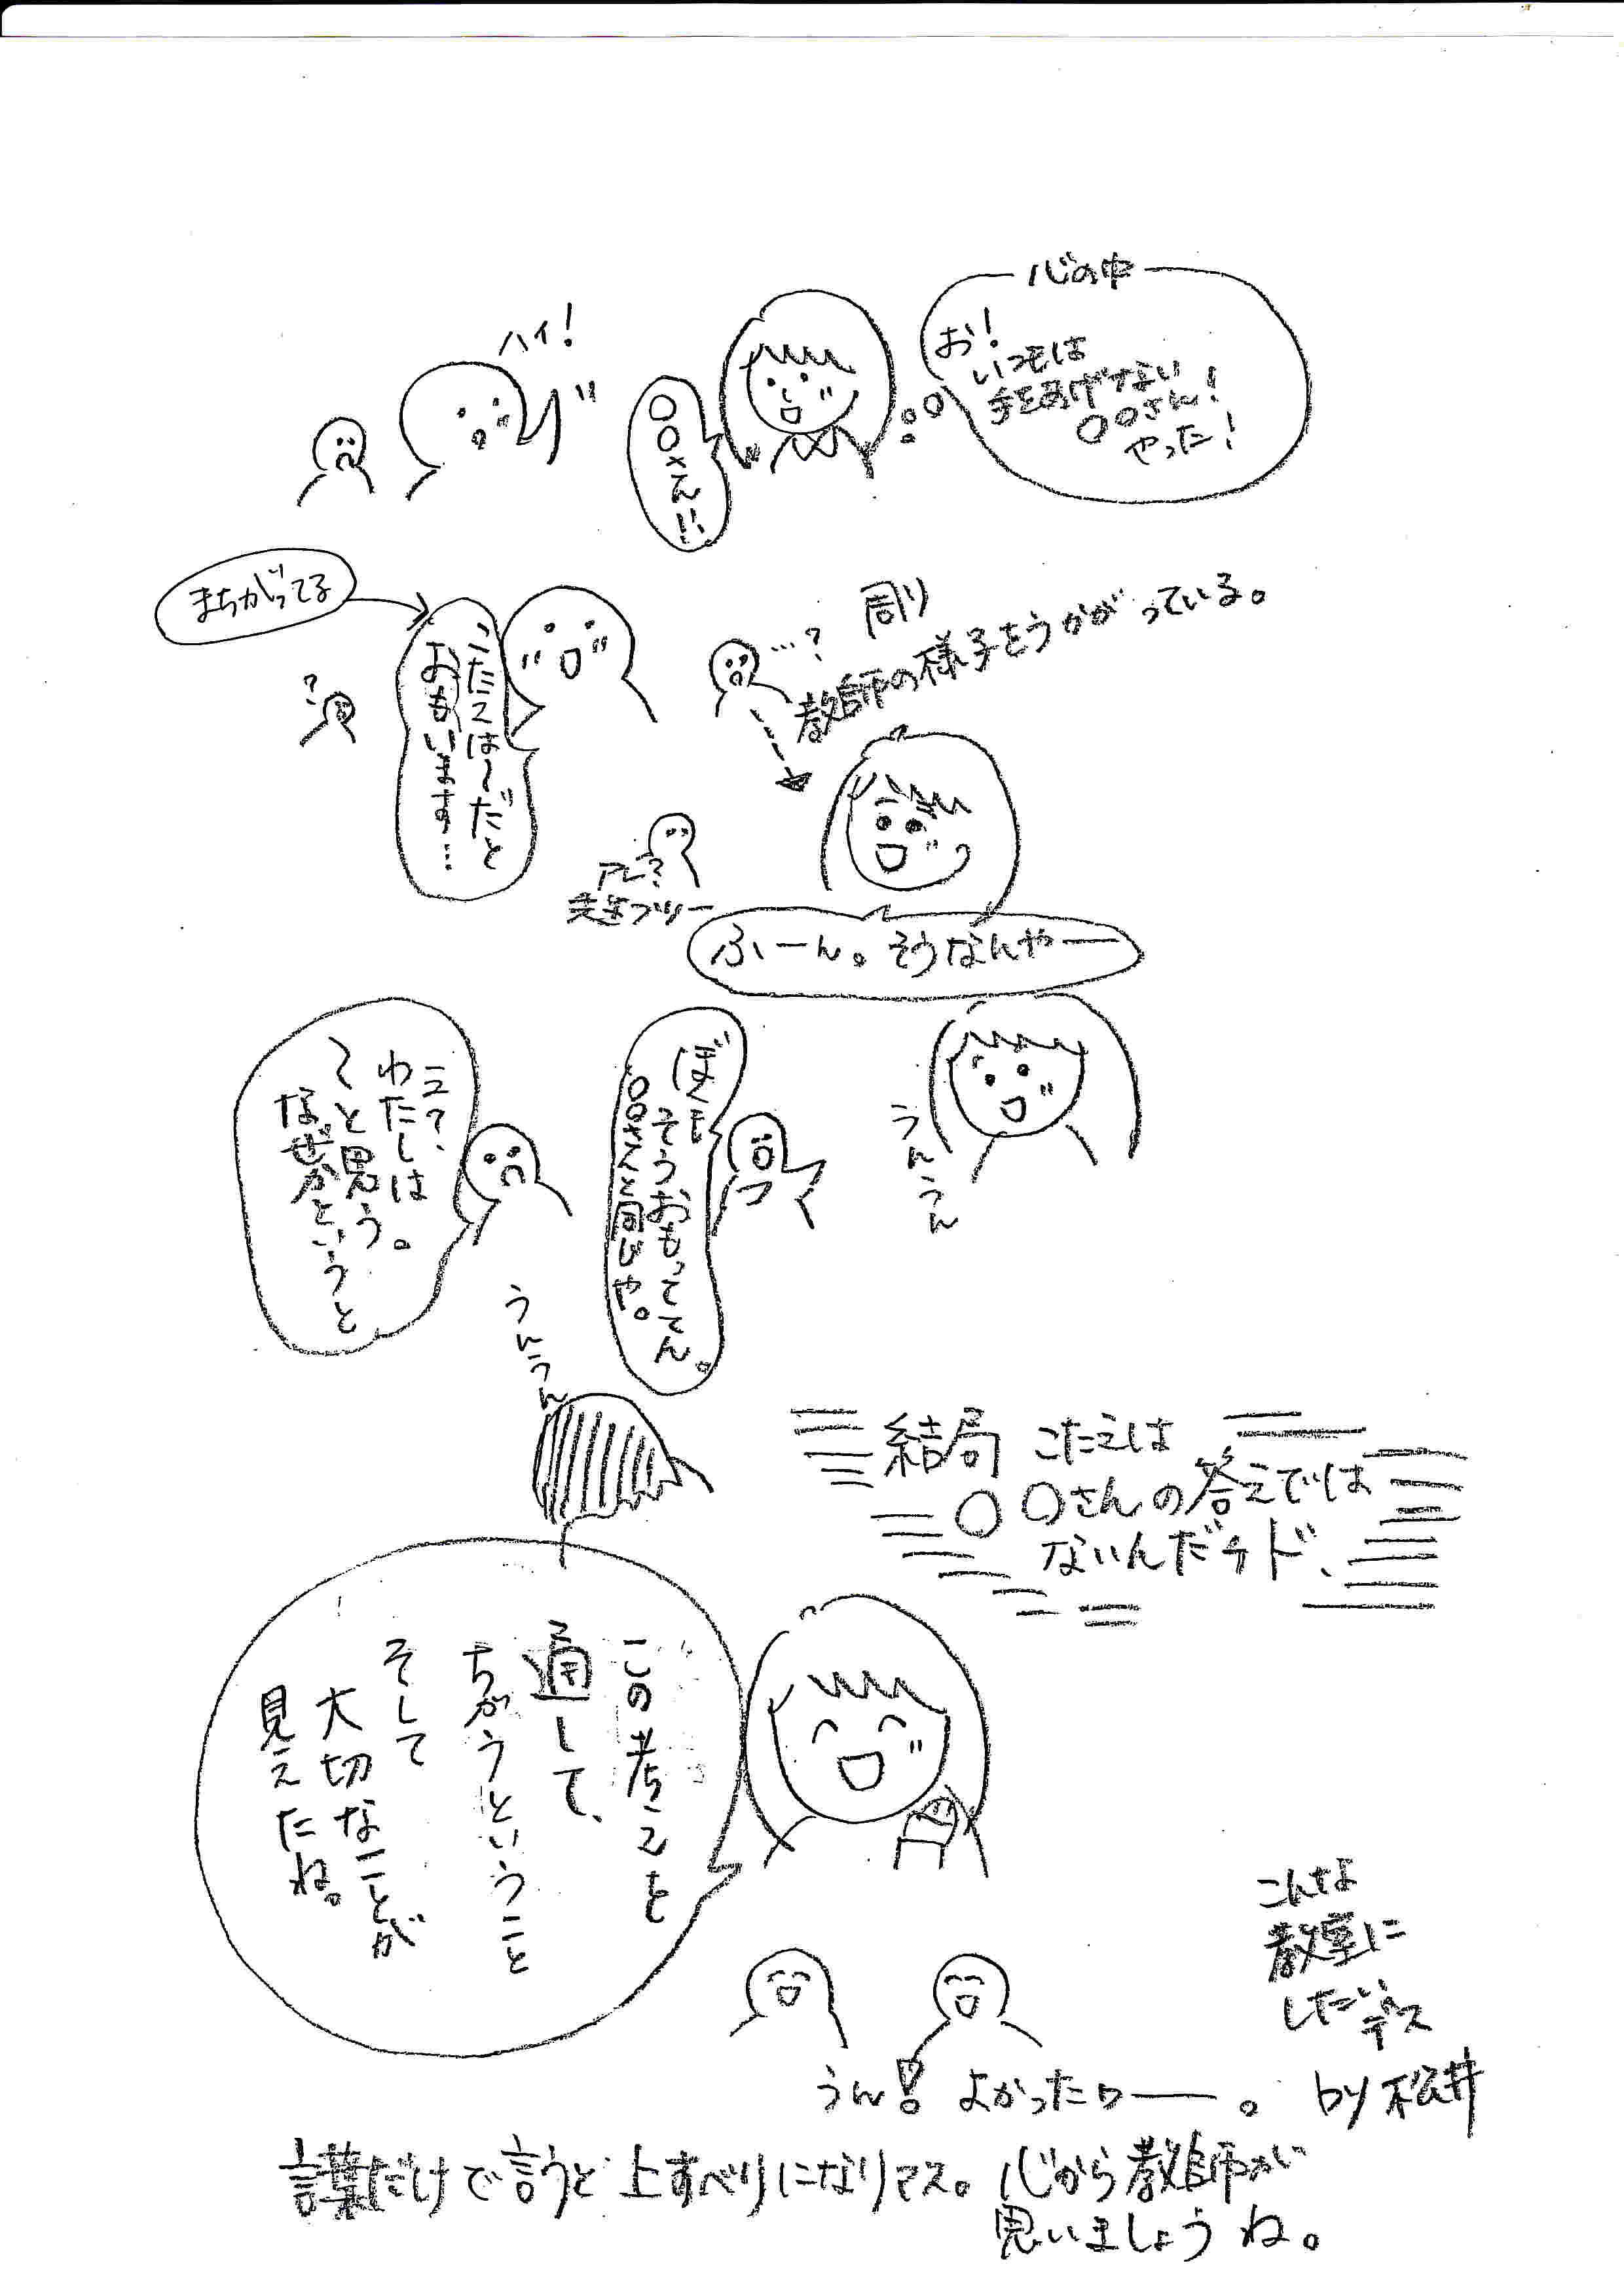 ハイ!
○○さん!!
心の中
お!
いつもは
手をあげない
○○さん!
やった!
まちがってる
こたえは〜だと
おもいます…
?
…?
周り
教師の様子をうかがっている。
アレ?
先生フツー
ふーん。そうなんやー
エ?
わたしは
〜と思う。
なぜかというと
ぼくも
そうおもっててん。
○○さんと同じや。
うんうん
うんうん
結局 こたえは
○○さんの答えでは
ないんだケド、
この考えを
通して、
ちがうということ
そして
大切なことが
見えたね。
うん! よかったワー。
こんな
教室に
したいデス
by 松井
言葉だけで言うと上すべりになりマス。心から教師が
思いましょうね。